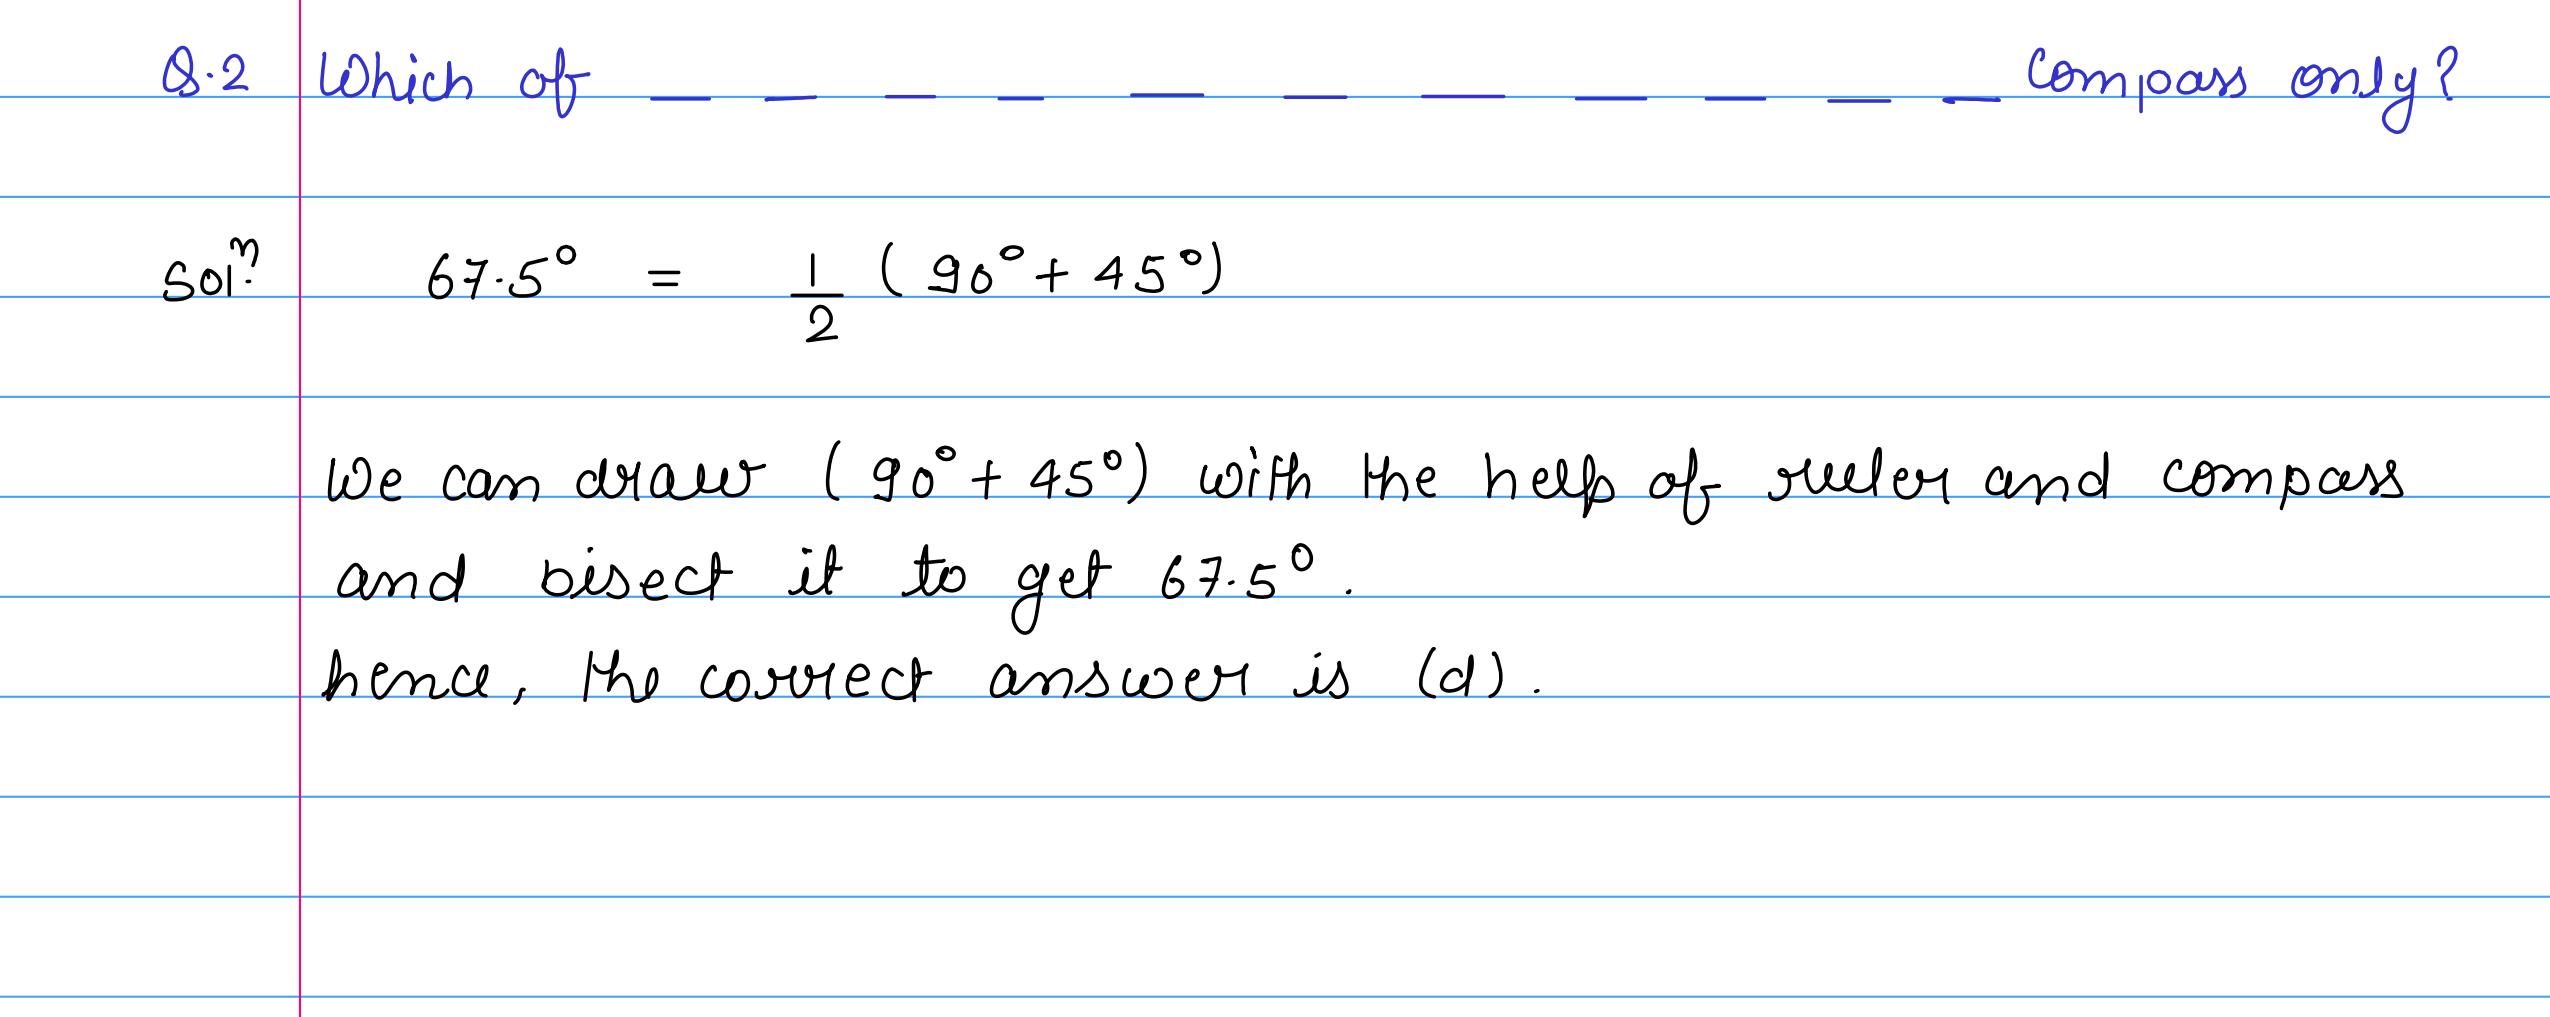 Q.2 Which of _ _ _ _ _ _ _ _ _ _ _ Compass only?
Solⁿ. 67.5° = 1/2 (90° + 45°)
We can draw (90° + 45°) with the help of ruler and compass
and bisect it to get 67.5°.
hence, the correct answer is (d).